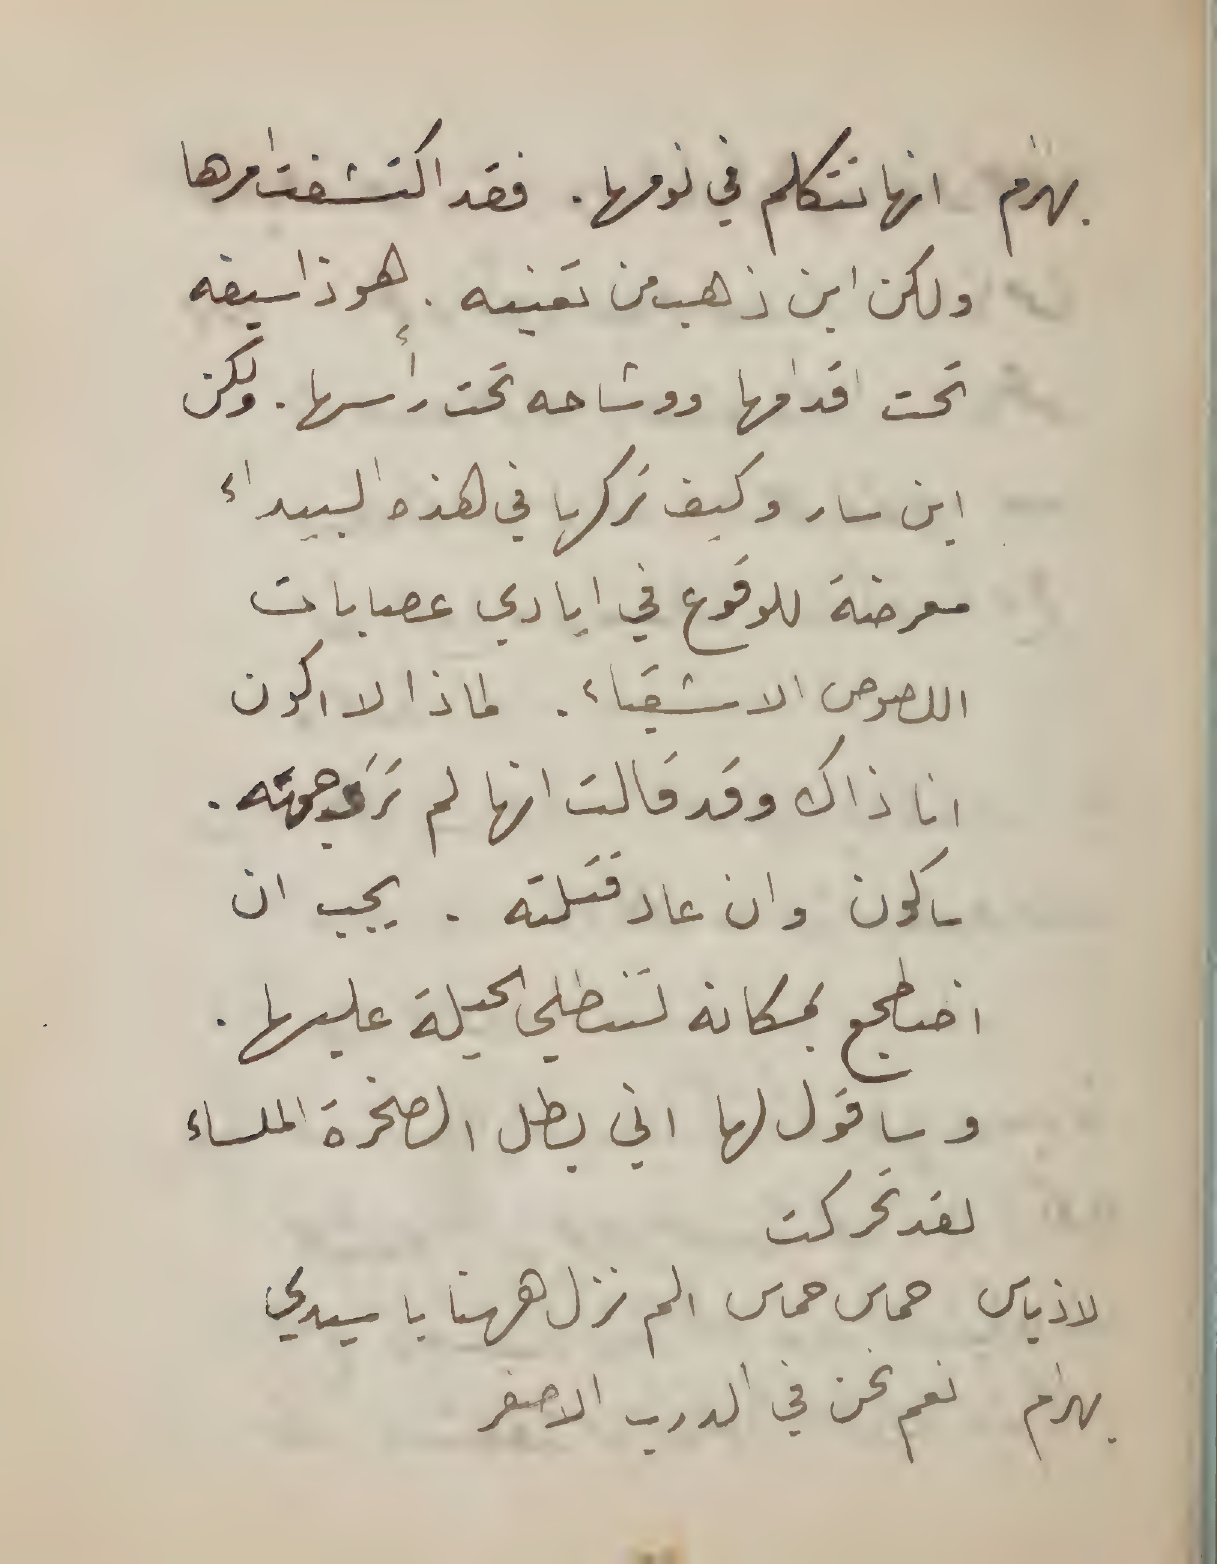 بهرام انها تتكلم في نومها. فقد اكتشفت امرها
ولكن اين ذهب من تعنيه. هوذا سيفه
تحت اقدامها ووشاحه تحت رأسها. ولكن
اين سار وكيف تركها في هذه البيداء
معرضة للوقوع في ايادي عصابات
اللصوص الاشقياء. لماذا لا اكون
انا ذاك وقد قالت انها لم ترَ وجهه.
ساكون وان عاد قتلته. يجب ان
اضطجع بمكانه لتنطلي الحيلة عليها.
وساقول لها اني بطل الصخرة الملساء
لقد تحركت
لاذياس حماس حماس الم نزل ههنا يا سيدي
بهرام نعم نحن في الدرب الاصفر